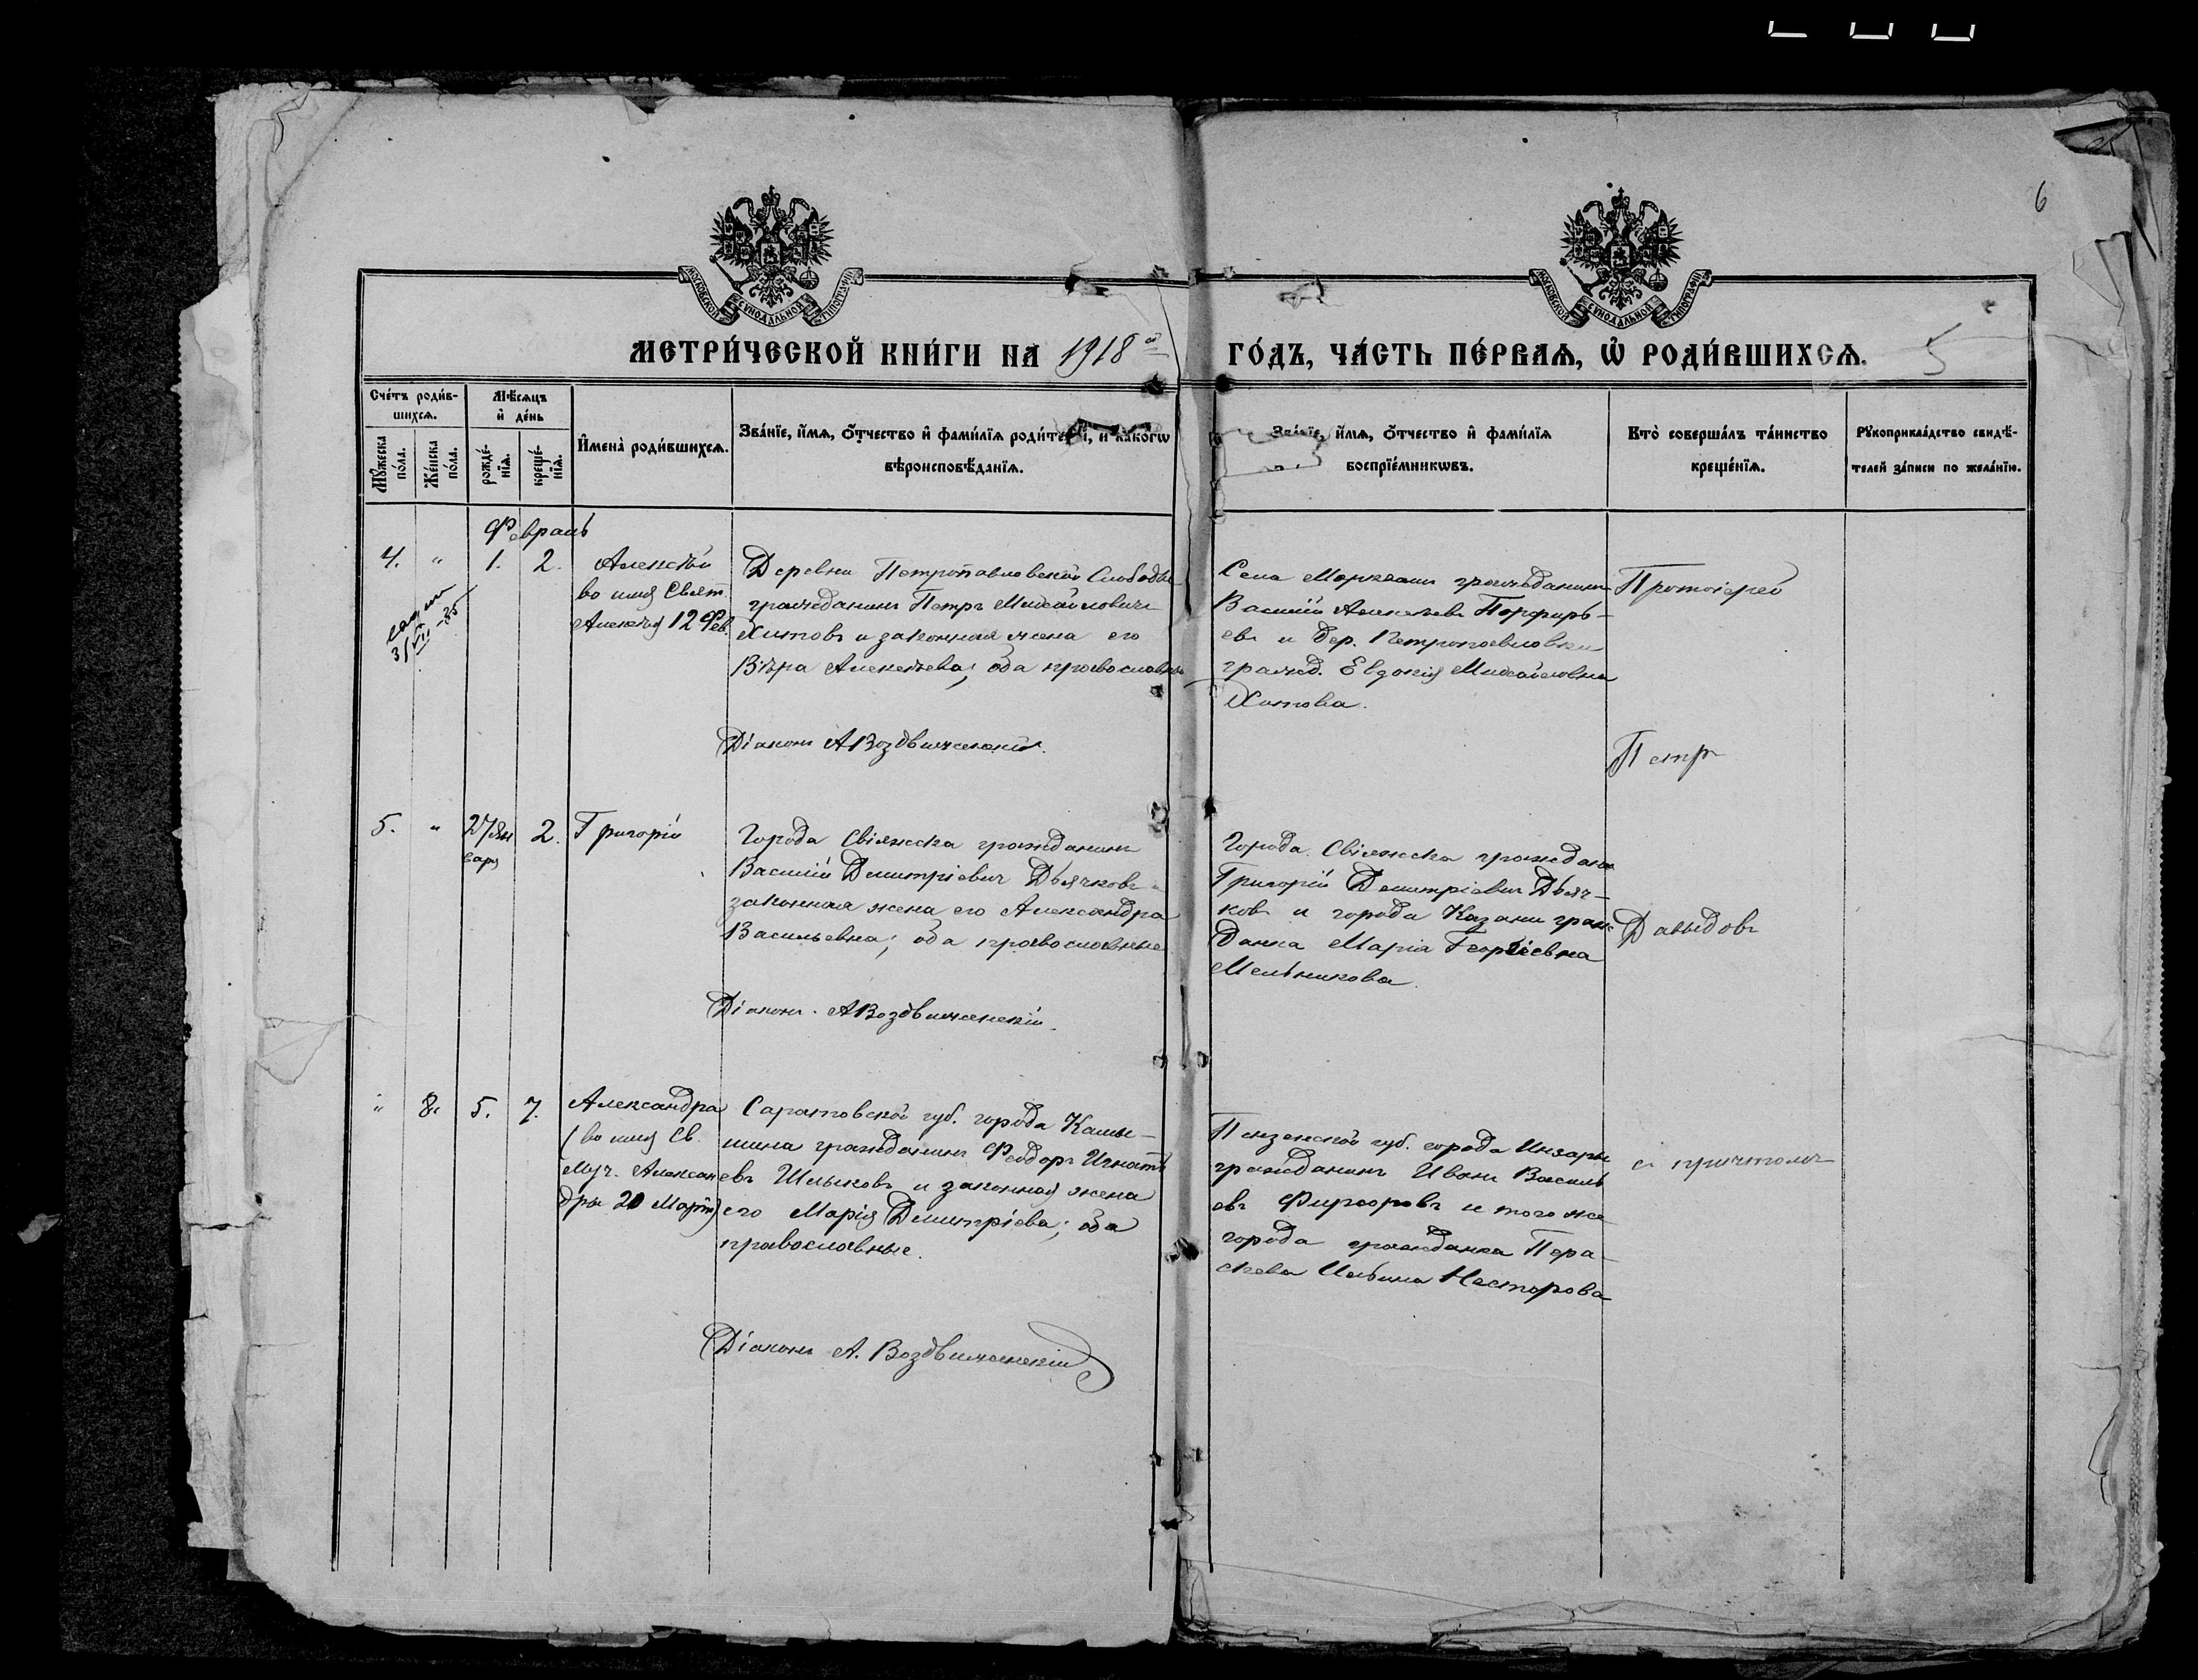 6
МОСКОВСКОЙ СУНОДАЛЬНОЙ ТИПОГРАФІИ
МОСКОВСКОЙ СУНОДАЛЬНОЙ ТИПОГРАФІИ
МЕТРИ́ЧЕСКОЙ КНИ́ГИ НА 1918 ГО́ДЪ, ЧА́СТЬ ПЕ́РВАѦ, Ѡ҆ РОДИ́ВШИХСѦ.
5
Сче́тъ роди́в-
шихсѧ.
Мѣ́сѧцъ
и҆ де́нь
Мꙋ́жеска
по́ла.
Же́нска
по́ла.
рожде́-
нїѧ.
креще́-
нїѧ.
И҆мена̀ роди́вшихсѧ.
Зва́нїе, и҆́мѧ, ѻ҆́тчество и҆ фами́лїѧ роди́телей, и҆ како́гѡ
вѣроисповѣ́данїѧ.
Зва́нїе, и҆́мѧ, ѻ҆́тчество и҆ фами́лїѧ
воспрїе́мникѡвъ.
Кто̀ соверша́лъ та́инство
креще́нїѧ.
Рꙋкоприкла́дство свидѣ́-
телей за́писи по жела́нїю.
Февраль
4. " 1. 2.
Алексѣй
во имя Свят.
Алексѣя 12 Фев.
Деревни Петропавловской Слободы
гражданинъ Петръ Михайловичъ
Хитовъ и законная жена его
Вѣра Алексѣева; оба православные
Діаконъ А Воздвиженскій.
Села гражданинъ
Василій Алексѣевъ Порфирь-
евъ и дер. Петропавловки
гражд. Евдокія Михайловна
Хитова.
Протоіерей
Петръ
5. " 27 Ян
варя
2.
Григорій
Города Свіяжска гражданинъ
Василій Димитріевич Дьячковъ и
законная жена его Александра
Васильевна; оба православные
Діаконъ А Воздвиженскій.
Города Свіяжска граждан
Григорій Димитріевич Дьяч-
ковъ и города Казани граж
данка Марія Георгіевна
Мельникова.
Давыдовъ
" 8. 5. 7.
Александра
(во имя Св.
Муч. Алексан
дры 20 Марта)
Саратовской губ. города Камы-
шина гражданинъ Феодоръ Игнатьъ
евъ Шлыковъ и законная жена
его Марія Димитріева; оба
православные.
Діаконъ А. Воздвиженскій
Пензенской губ. города Инзары
гражданинъ Иванъ Василь
евъ и того же
города гражданка Пара-
скева Ильина Нестерова
съ причтомъ